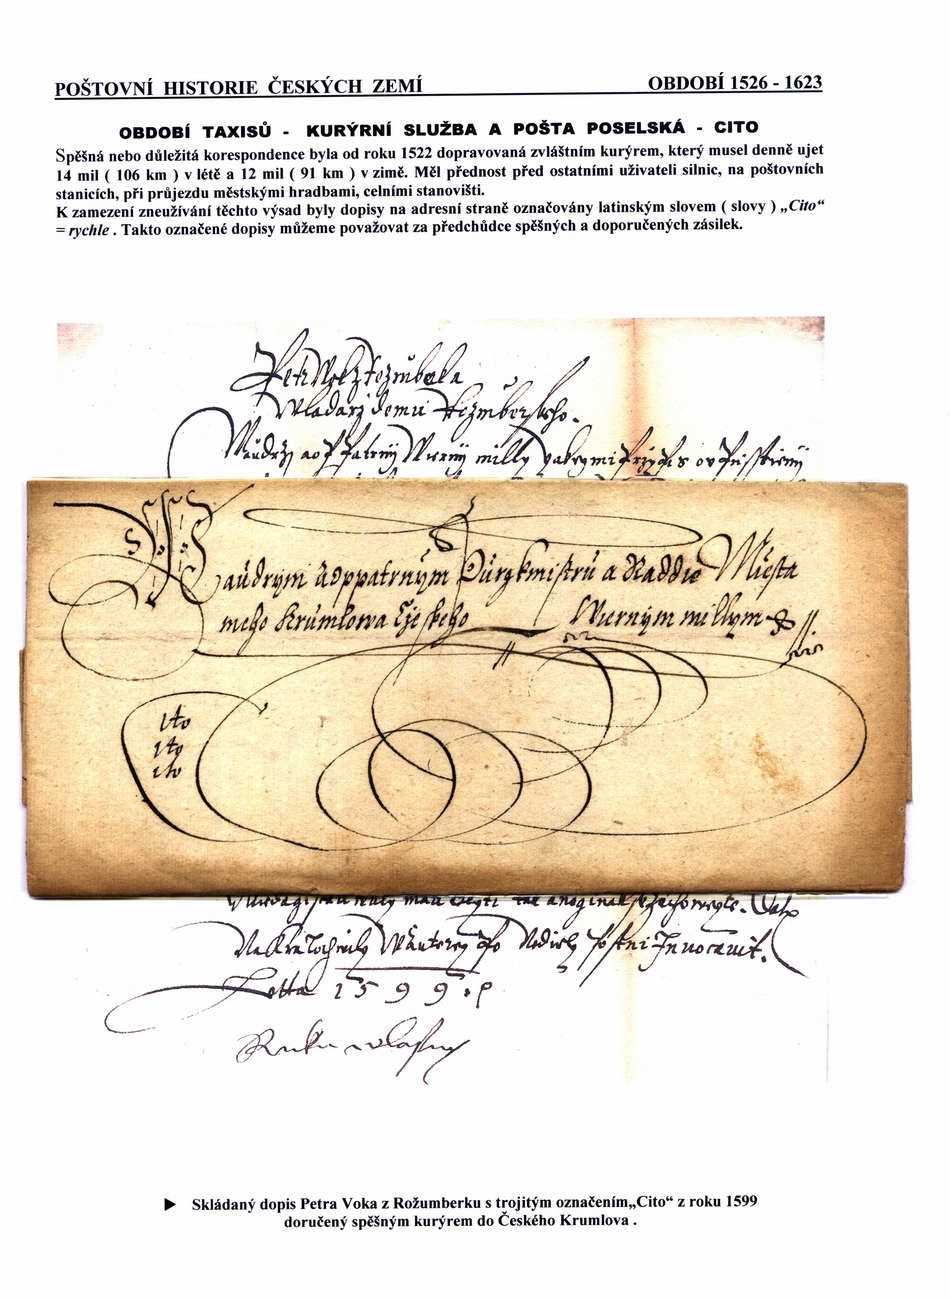 POŠTOVNÍ HISTORIE ČESKÝCH ZEMÍ
OBDOBÍ 1526 - 1623
OBDOBÍ TAXISŮ - KURÝRNÍ SLUŽBA A POŠTA POSELSKÁ - CITO
Spěšná nebo důležitá korespondence byla od roku 1522 dopravovaná zvláštním kurýrem, který musel denně ujet
14 mil ( 106 km ) v létě a 12 mil ( 91 km ) v zimě. Měl přednost před ostatními uživateli silnic, na poštovních
stanicích, při průjezdu městskými hradbami, celními stanovišti.
K zamezení zneužívání těchto výsad byly dopisy na adresní straně označovány latinským slovem ( slovy ) „Cito“
= rychle . Takto označené dopisy můžeme považovat za předchůdce spěšných a doporučených zásilek.
Petr Wok z Rozmberka
Wladarz domu Rozmberskeho.
milly
Maudrym a Oppatrnym Purgkmistru a Raddie Miesta
meho Krumlowa Cžeskeho Wiernym millym
Cito
Cito
Cito
Letha 1599.
Ruku wlastny
▶ Skládaný dopis Petra Voka z Rožumberku s trojitým označením„Cito“ z roku 1599
doručený spěšným kurýrem do Českého Krumlova .